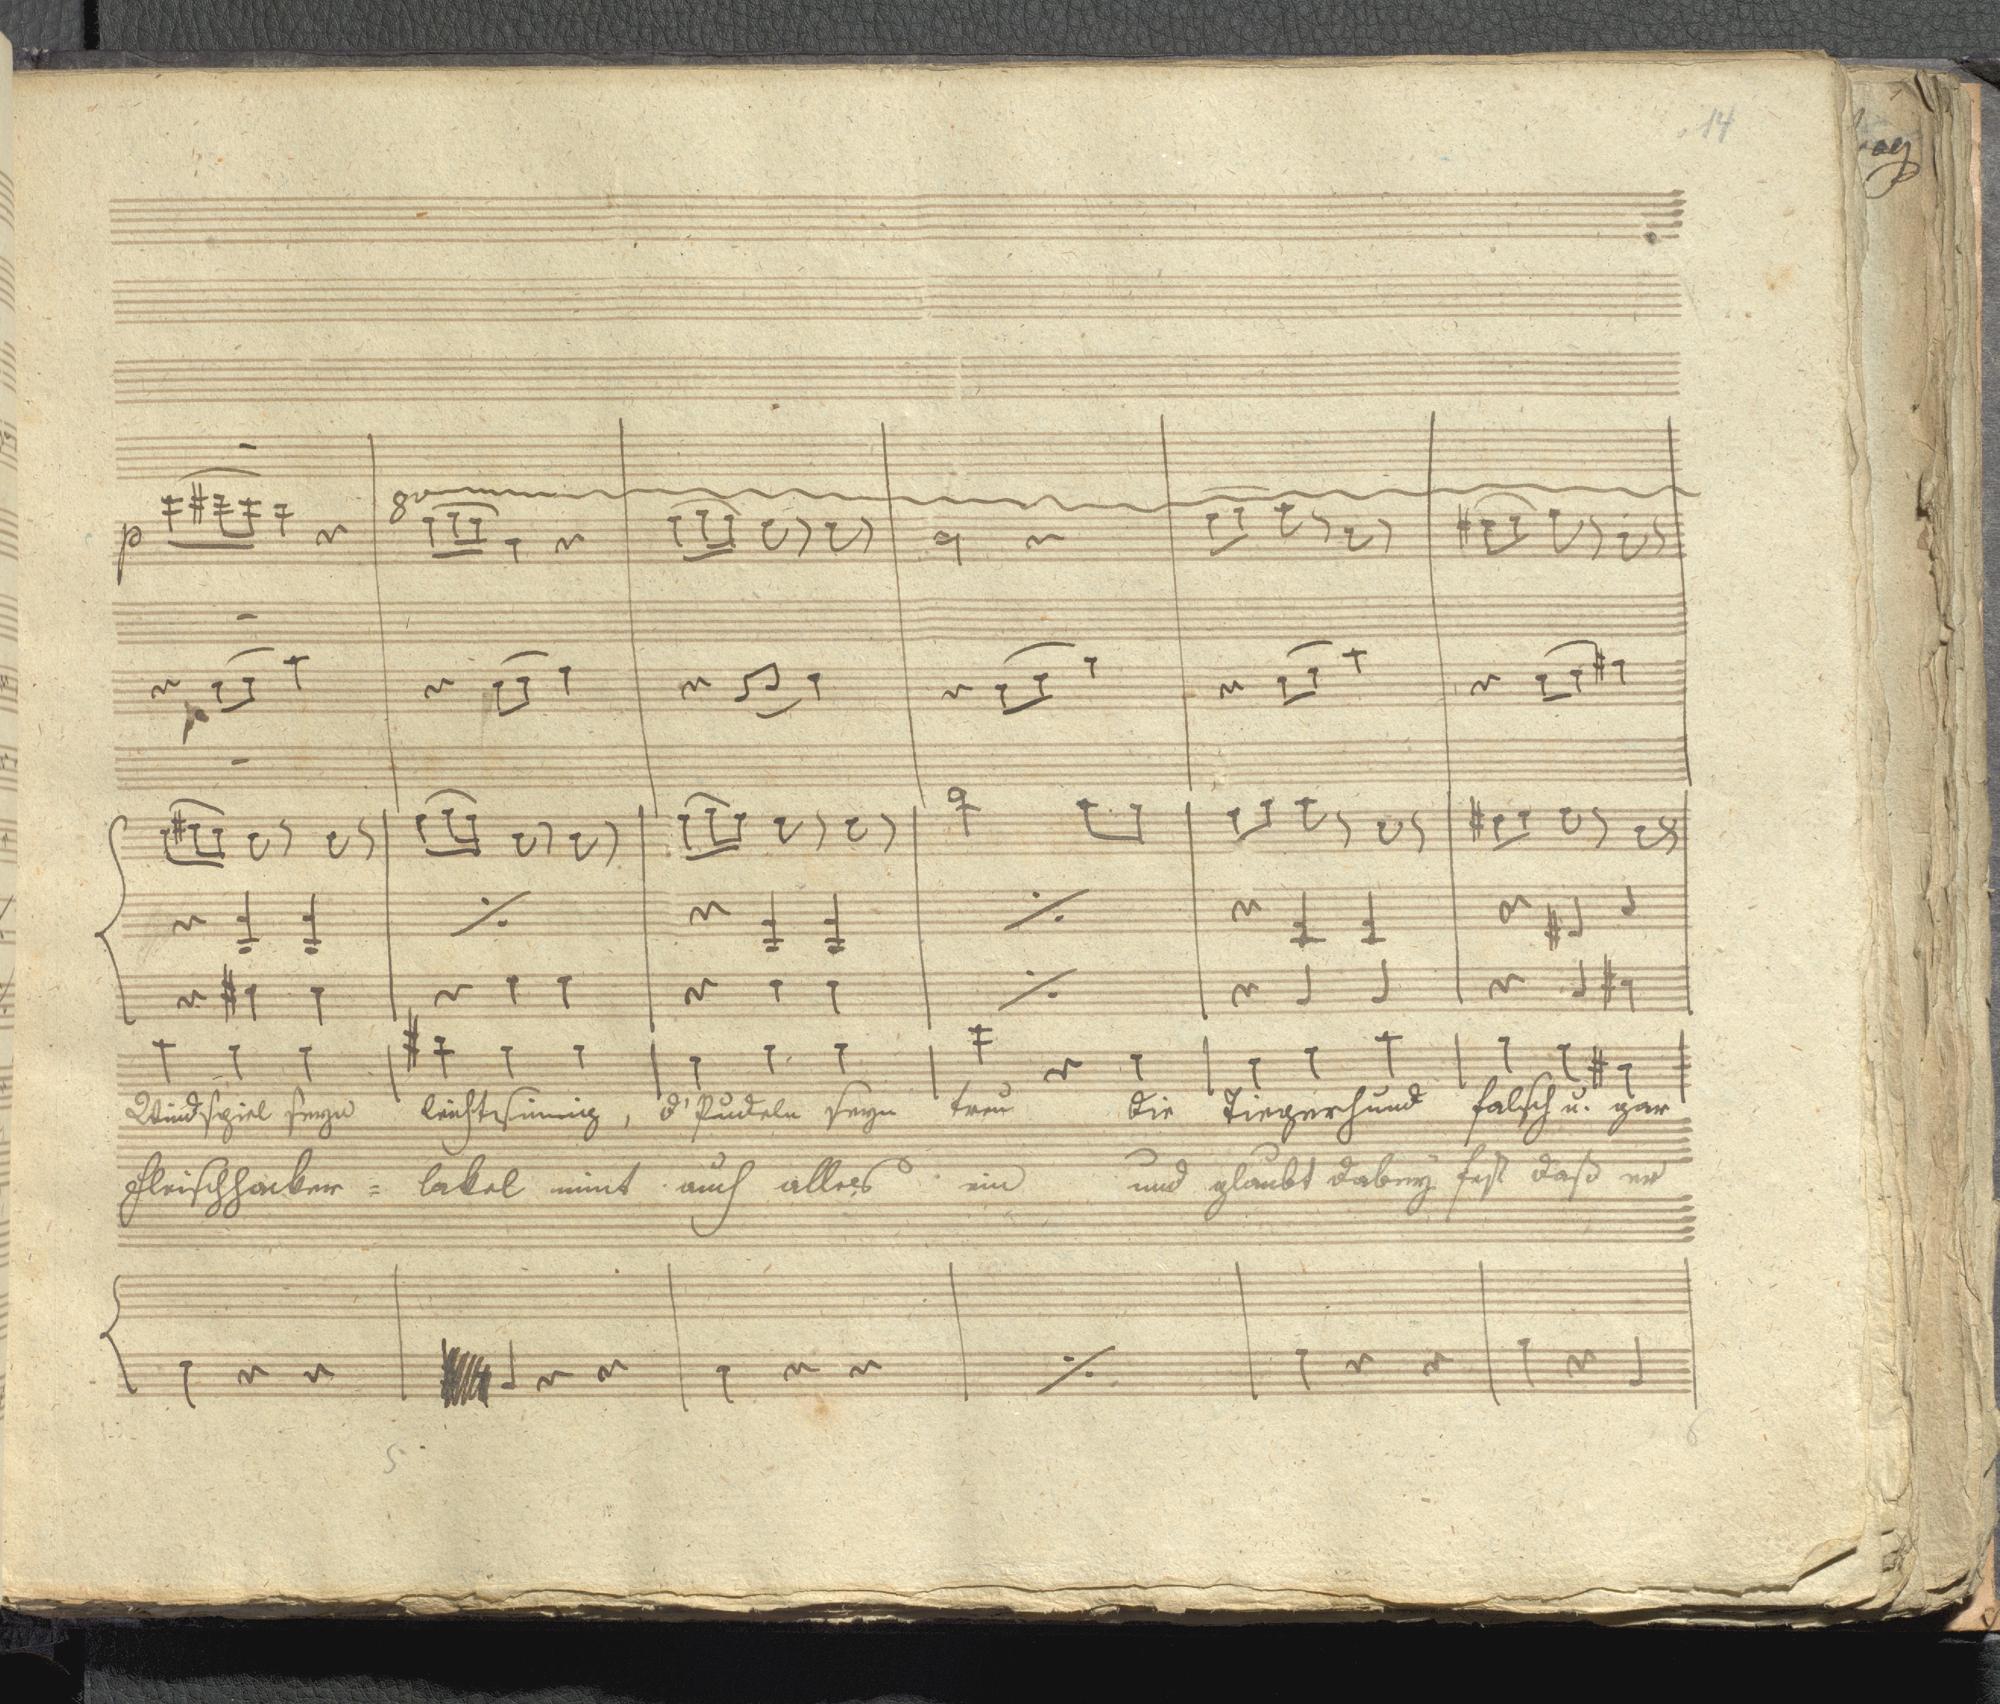 14
p
8v
p
Windspiel seyn leichtsinnig, d'Pudeln seyn treu die Tiegerhund falsch u. gar
Fleischhacker = lakel nimt auch alles ein und glaubt dabey fest daß er
5
6